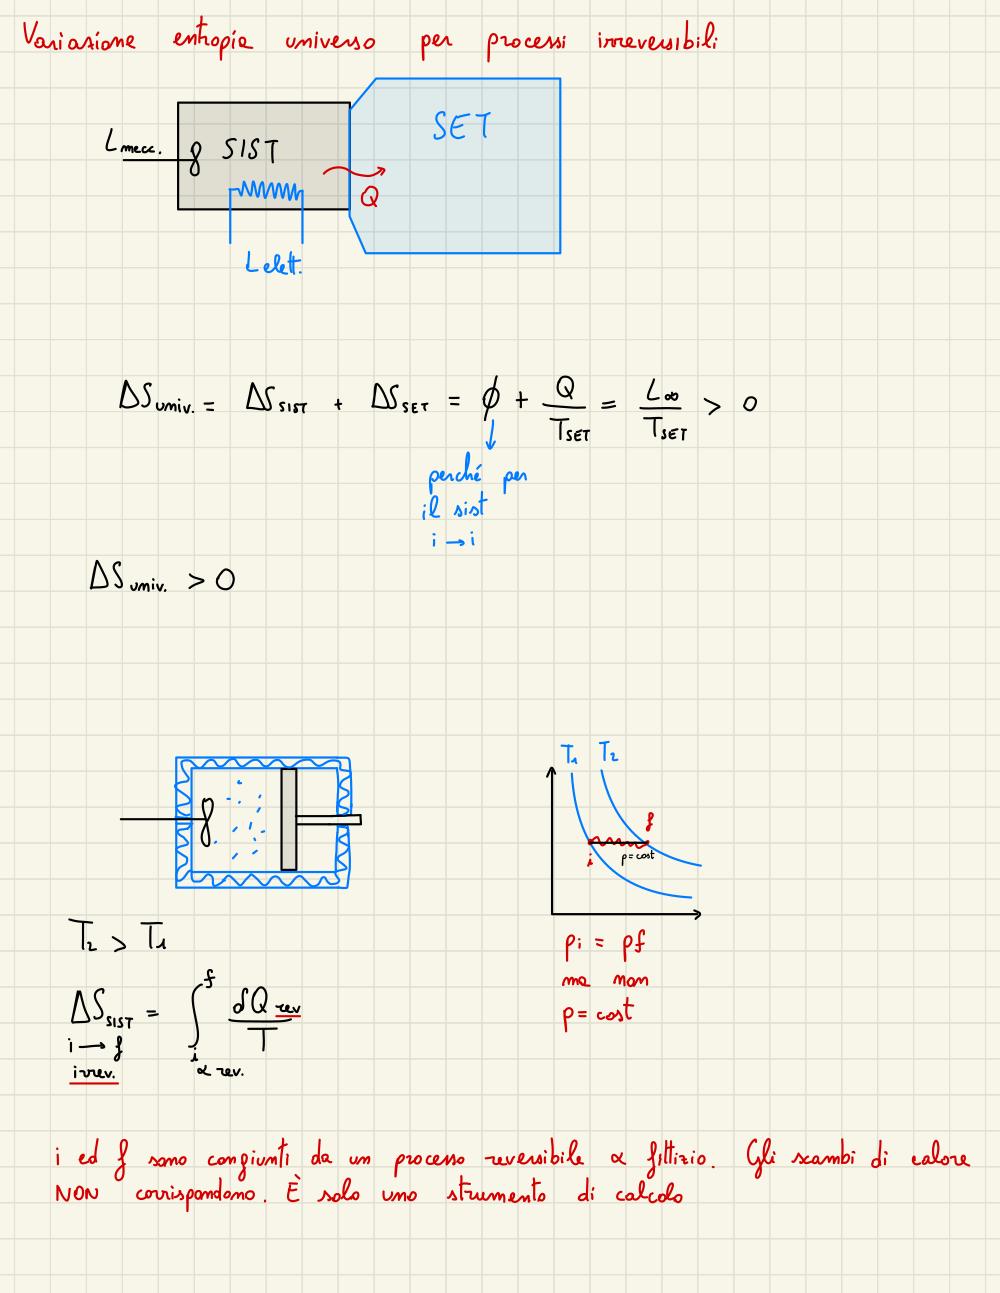 Variazione entropia universo per processi irreversibili
SET
L mecc. SIST
Q
L elett.
ΔS univ. = ΔS SIST + ΔS SET = ϕ + Q/T SET = L∞/T SET > 0
perché per
il sist
i → i
ΔS univ. > 0
T1 T2
f
i p = cost
T2 > T1
pi = pf
ma non
p = cost
ΔS SIST = ∫ i f δQ rev/T
i → f
irrev. α rev.
i ed f sono congiunti da un processo reversibile α fittizio. Gli scambi di calore
NON corrispondono. È solo uno strumento di calcolo